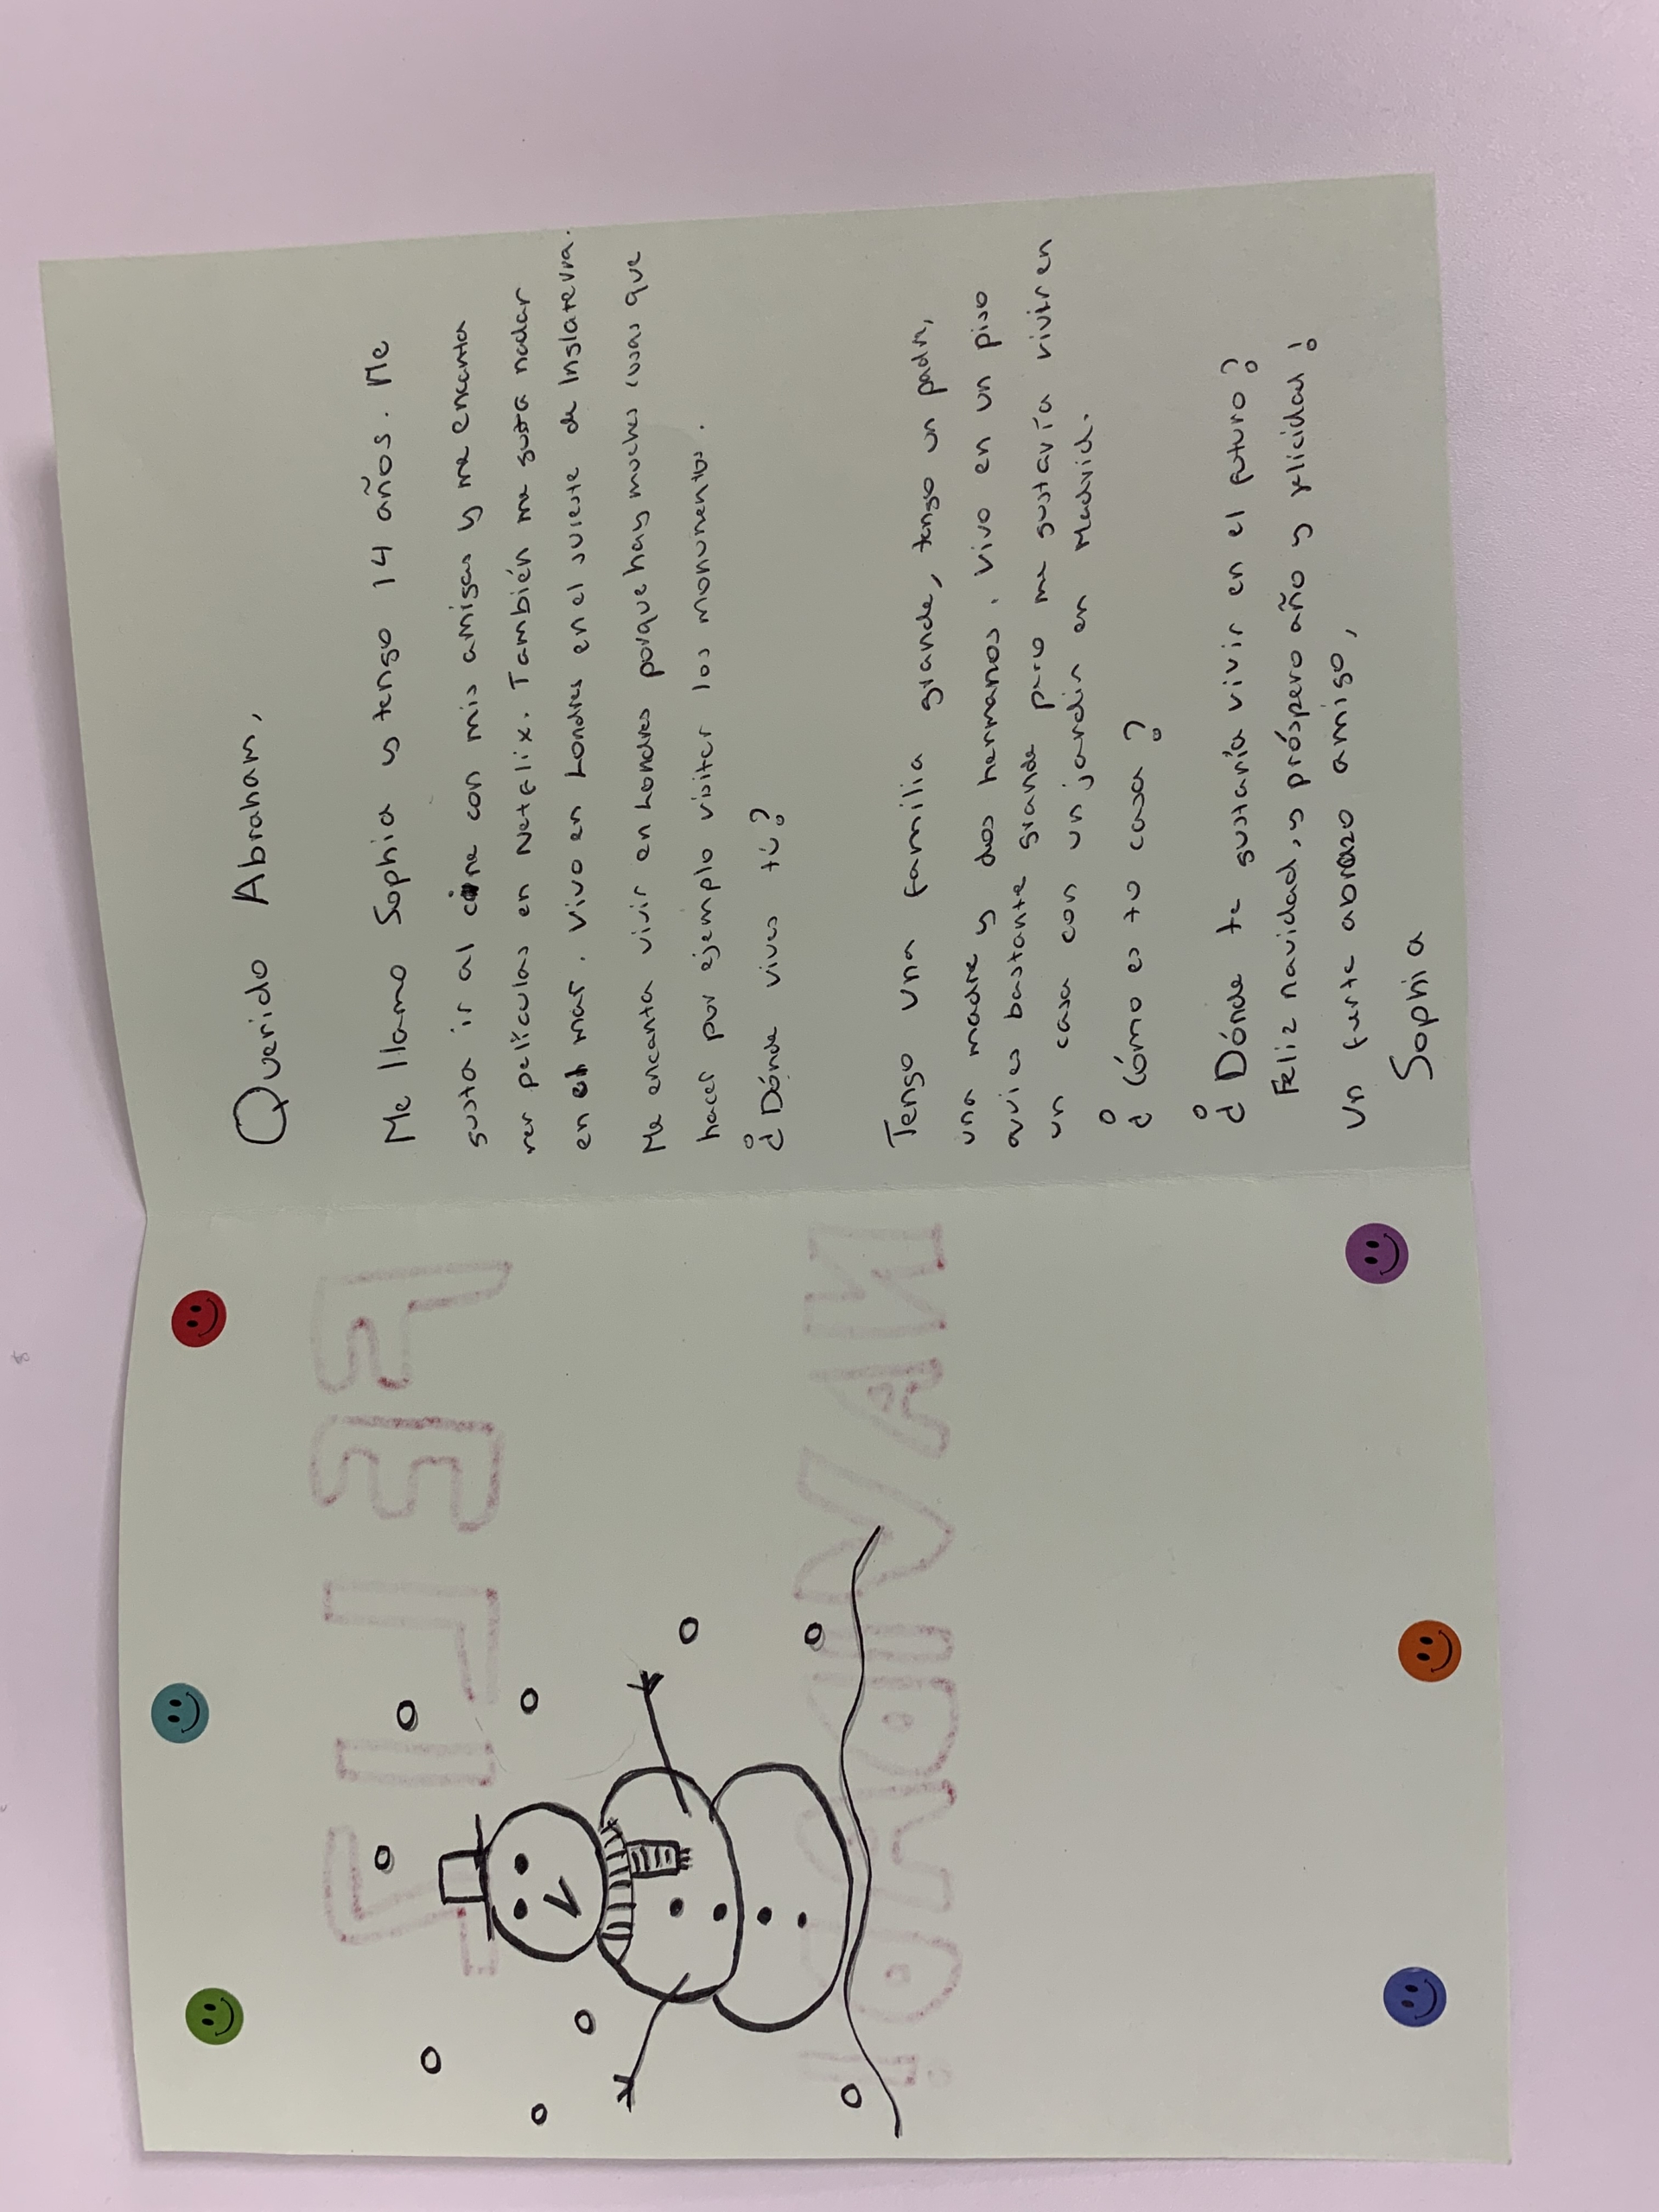 Querido Abraham,
Me llamo Sophia y tengo 14 años. Me
gusta ir al cine con mis amigas y me encanta
ver películas en Netflix. También me gusta nadar
en el mar. Vivo en Londres en el sureste de Inglaterra.
Me encanta vivir en Londres porque hay muches cosas que
hacer por ejemplo visiter los monumentos.
¿Dónde vives tú?
Tengo una familia grande, tengo un padre,
una madre y dos hermanos. Vivo en un piso
que es bastante grande pero me gustaría vivir en
un casa con un jardín en Madrid.
¿Cómo es tu casa?
¿Dónde te gustaría vivir en el futuro?
Feliz navidad, y próspero año y felicidad!
un fuerte abrazo amigo,
Sophia
FELIZ
NAVIDAD!